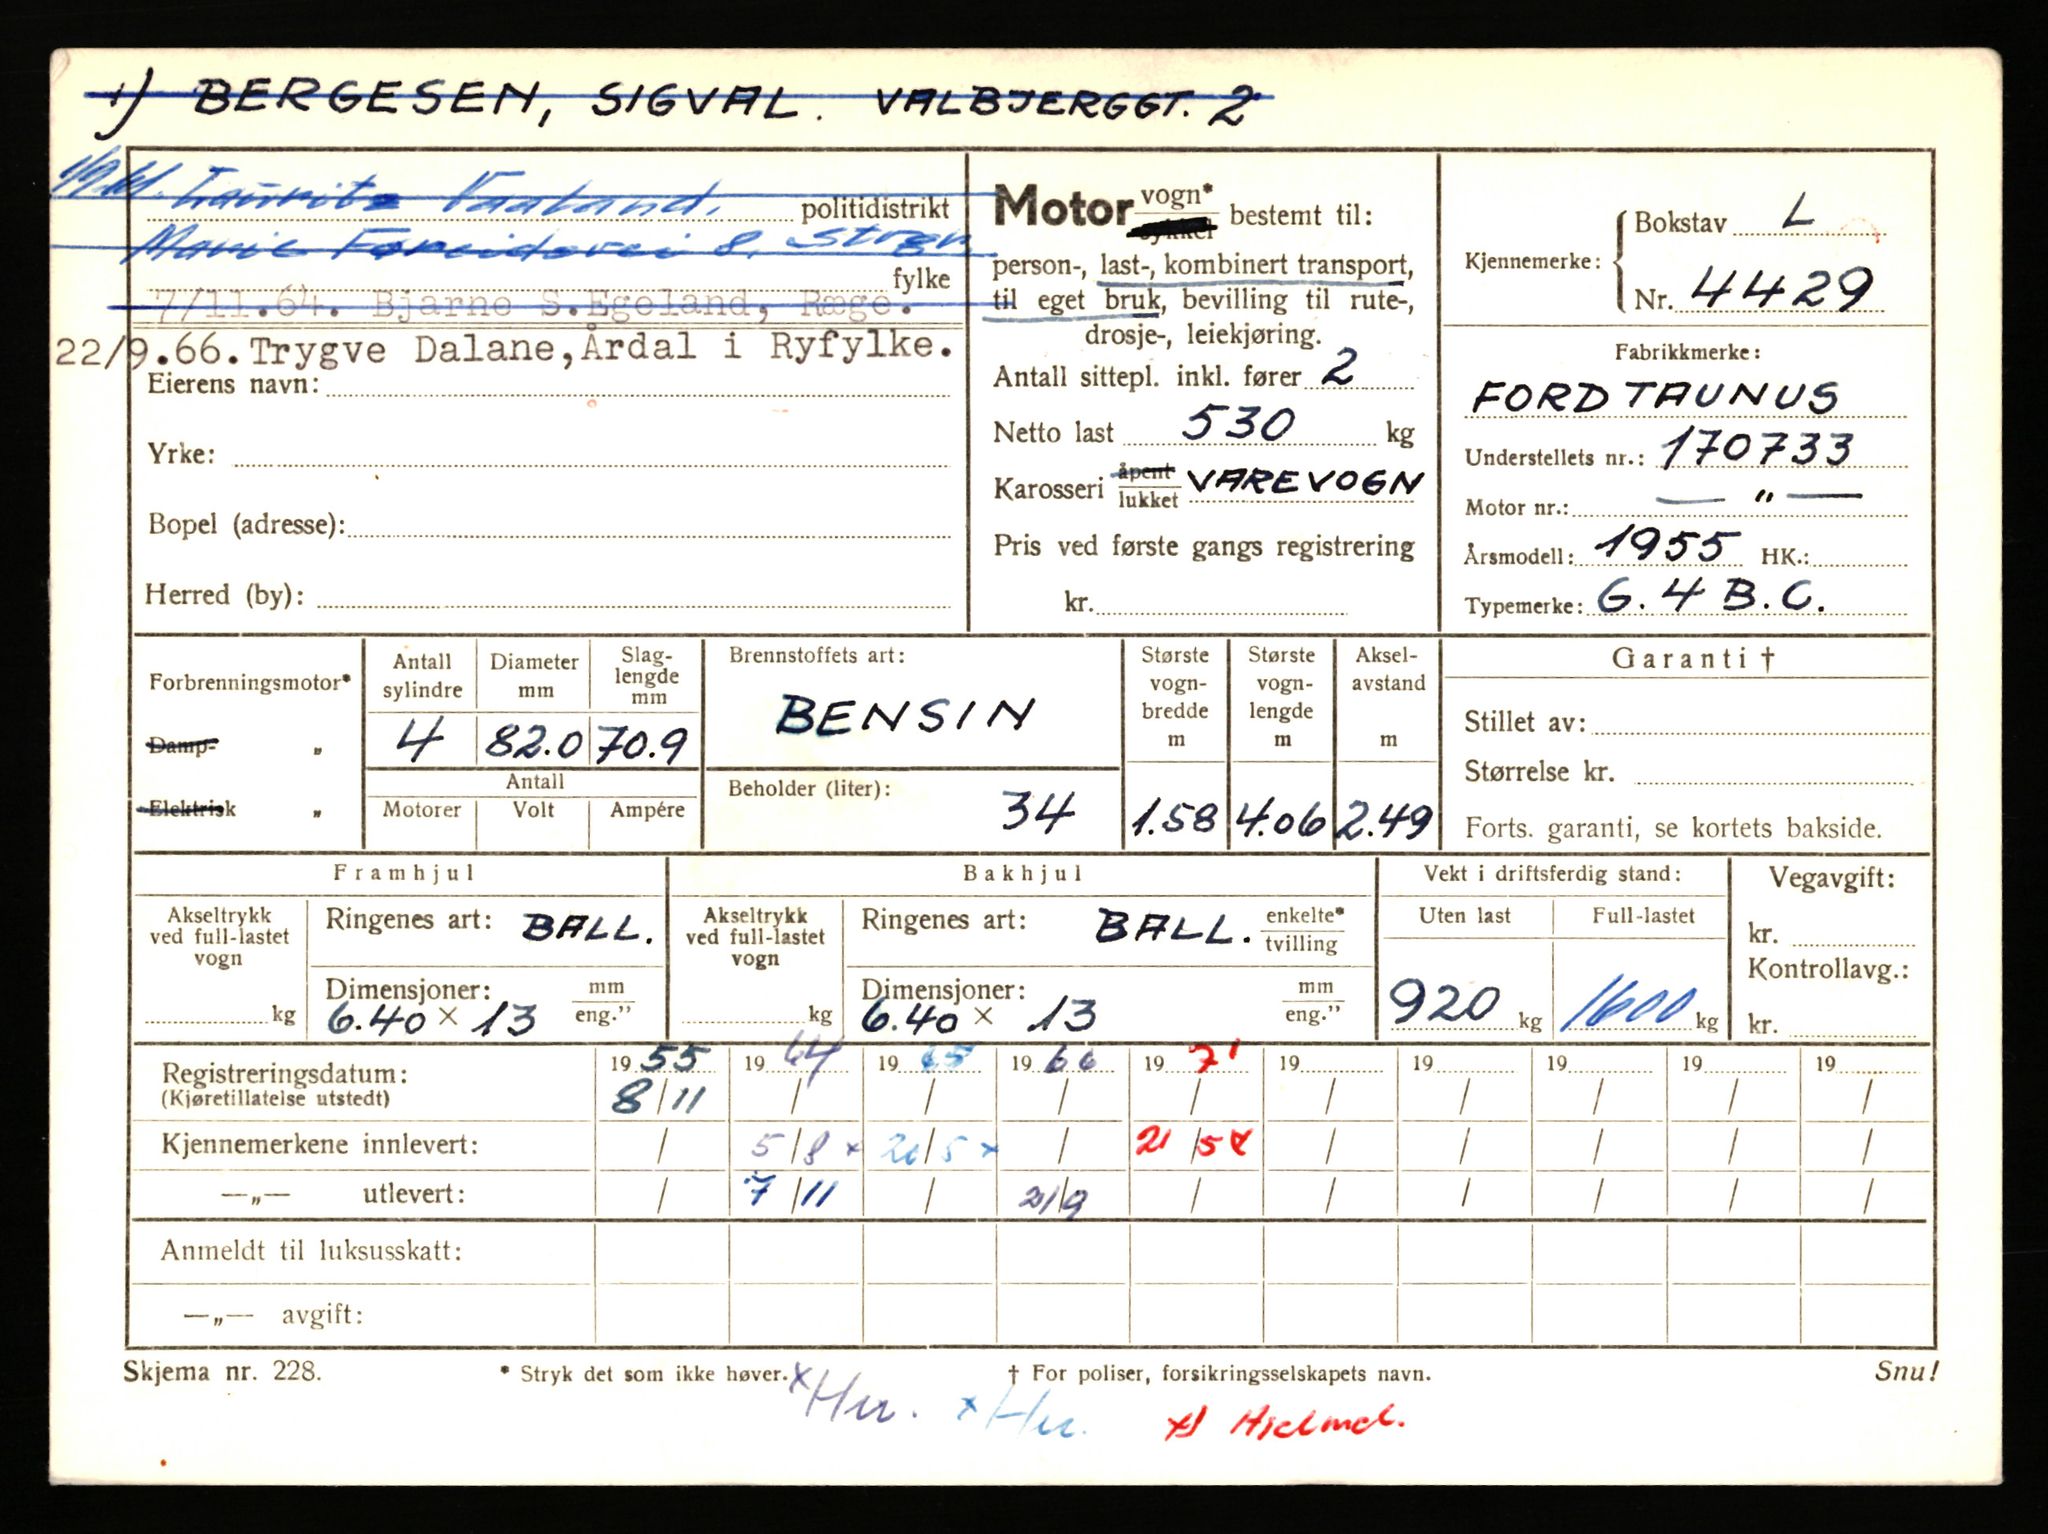 1) BERGESEN, SIGVAL. VALBJERGGT. 2
Lauritz Vaaland.
politidistrikt
8, Stvgr.
fylke
7/11.64. Bjarne S.Egeland, Ræge.
22/9.66. Trygve Dalane, Årdal i Ryfylke.
Eierens navn:
Yrke:
Bopel (adresse):
Herred (by):
Motor vogn* bestemt til:
sykkel
person-, last-, kombinert transport,
til eget bruk, bevilling til rute-,
drosje-, leiekjøring.
Antall sittepl. inkl. fører 2
Netto last 530 kg
Karosseri åpent lukket VAREVOGN
Pris ved første gangs registrering
kr.
Kjennemerke: Bokstav L
Nr. 4429
Fabrikkmerke:
FORD TAUNUS
Understellets nr.: 170733
Motor nr.: — " —
Årsmodell: 1955 HK.:
Typemerke: G. 4 B.C.
Forbrenningsmotor*
Damp- "
Elektrisk "
Antall sylindre Diameter mm Slaglengde mm
4 82.0 70.9
Antall
Motorer Volt Ampére
Brennstoffets art:
BENSIN
Beholder (liter): 34
Største vognbredde m 1.58
Største vognlengde m 4.06
Akselavstand m 2.49
Garanti †
Stillet av:
Størrelse kr.
Forts. garanti, se kortets bakside.
Framhjul
Akseltrykk ved full-lastet vogn kg
Ringenes art: BALL.
Dimensjoner: mm eng."
6.40 × 13
Bakhjul
Akseltrykk ved full-lastet vogn kg
Ringenes art: BALL. enkelte* tvilling
Dimensjoner: mm eng."
6.40 × 13
Vekt i driftsferdig stand:
Uten last Full-lastet
920 kg 1600 kg
Vegavgift:
kr.
Kontrollavg.:
kr.
Registreringsdatum: 19 55 19 64 19 65 19 66 19 71 19 19 19 19 19
(Kjøretillatelse utstedt) 8/11 / / / / / / / / /
Kjennemerkene innlevert: / 5/8 x 20/5 x / 21/5 x / / / / /
—„— utlevert: / 7/11 / 21/9 / / / / / /
Anmeldt til luksusskatt:
—„— avgift:
Skjema nr. 228. * Stryk det som ikke høver. † For poliser, forsikringsselskapets navn. Snu!